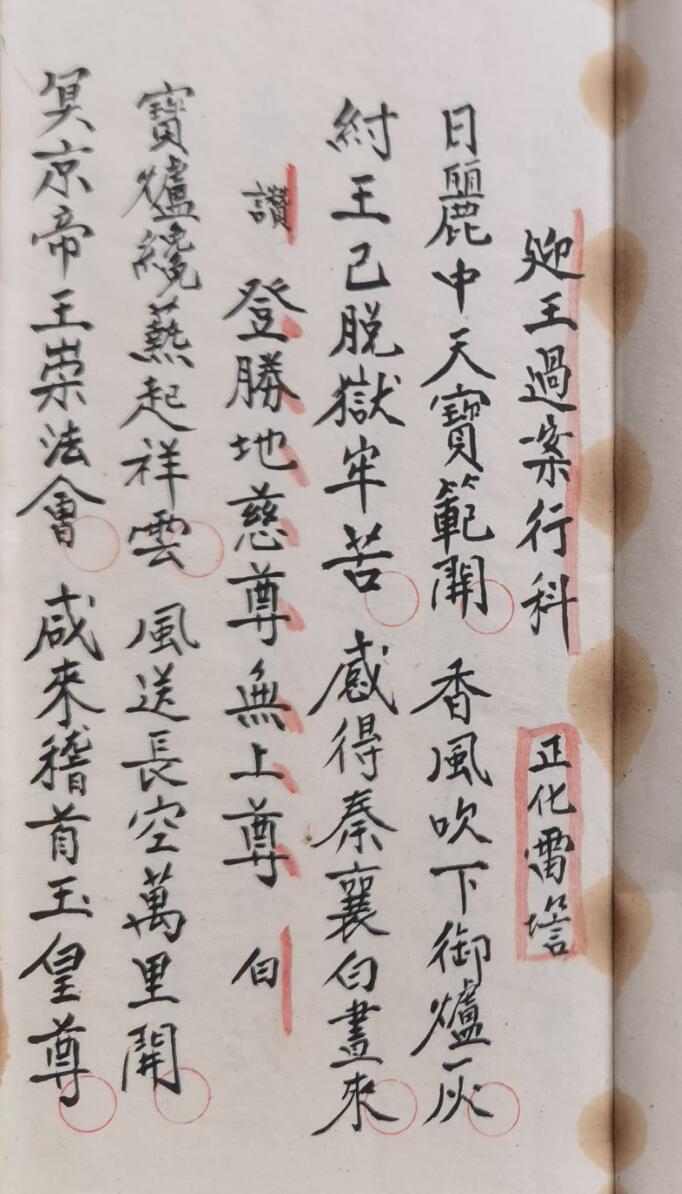 迎王過案行科 正化雷壇
日麗中天寶範開 香風吹下御爐灰
紂王己脱獄牢苦 感得秦襄白晝來
讚 登勝地慈尊無上尊 白
寶爐纔爇起祥雲 風送長空萬里開
冥京帝王崇法會 咸來稽首玉皇尊